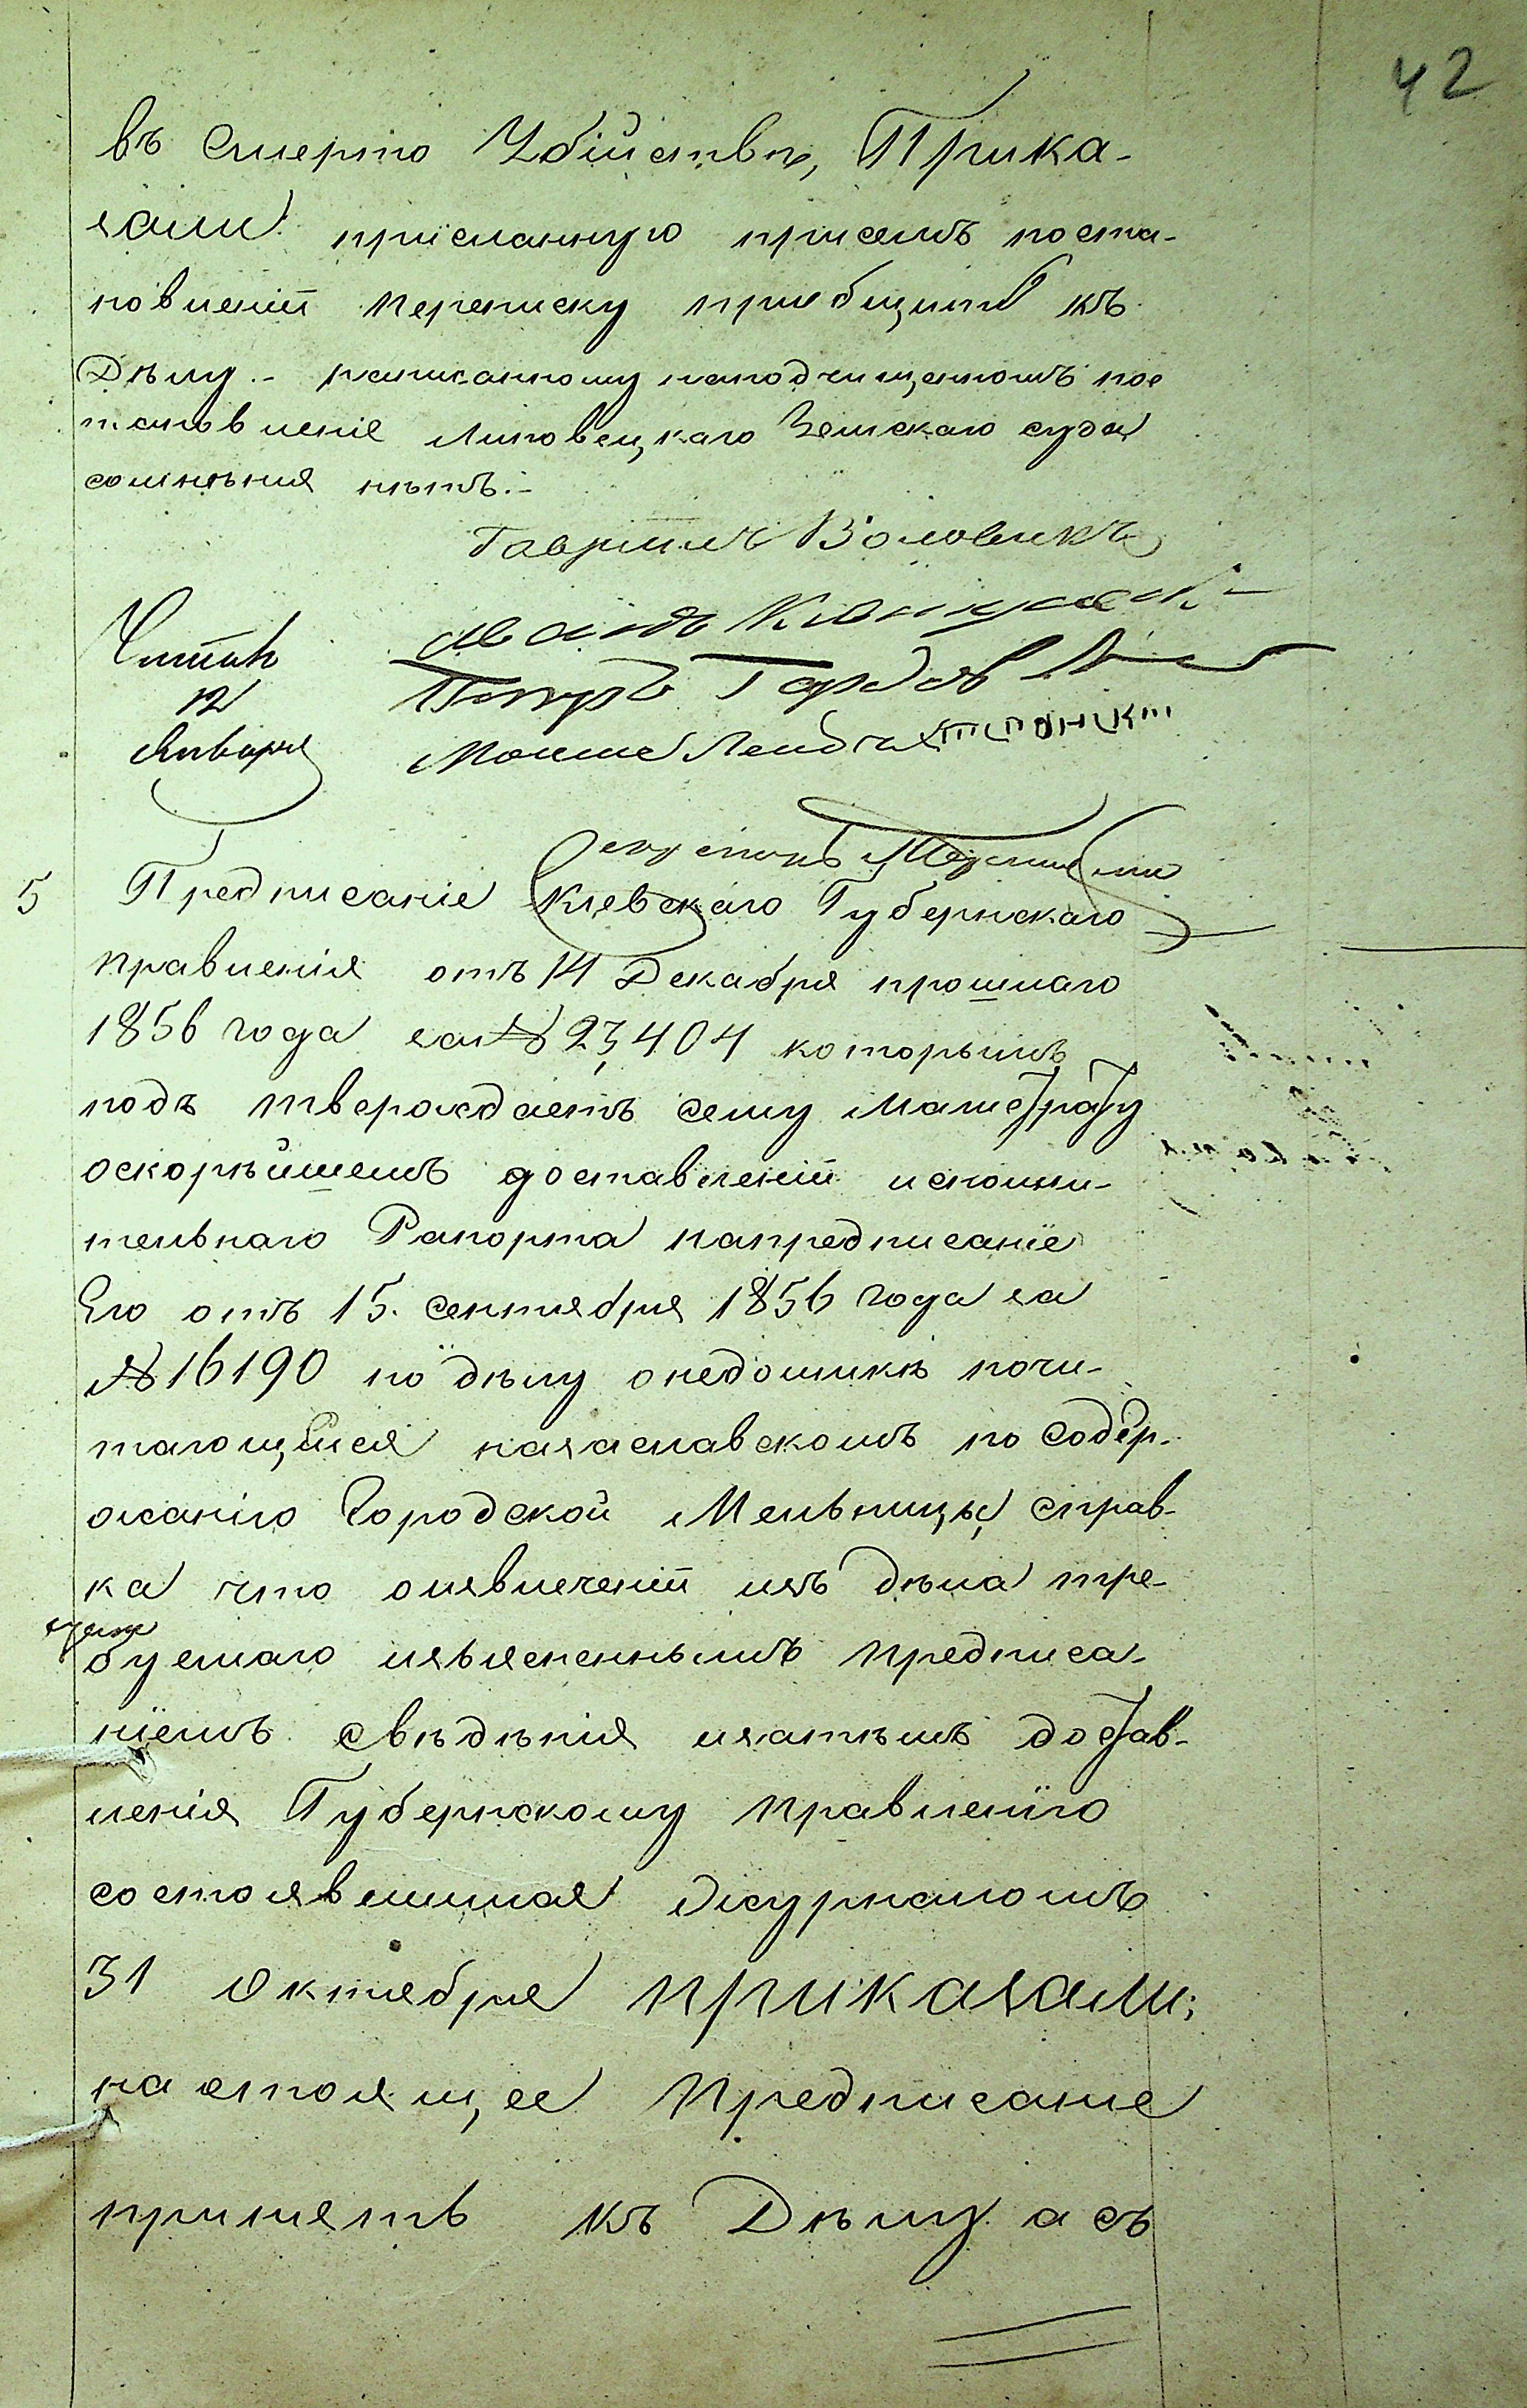 42
въ смерто Убійствѣ, Прика-
зали присланную присемъ поста-
новленій переписку приобщить къ
Дѣлу.- росписанному неподчищенномъ пос
тановленіе Липовецкаго Земскаго суда
сомнѣния нѣтъ.-
Гавриилъ Воловикъ
Читалъ
12
Января
Петръ
Мошие
5 Предписаніе Кіевскаго Губернскаго
правленія отъ 14 Декабря прошлаго
1856 года за № 23,404 которымъ
подъ тверождаетъ сему Магистрату
оскорѣйшемъ доставленій исполни-
тельнаго Рапорта напредписаніе
Его отъ 15. сентября 1856 года за
№ 16190 по дѣлу онедоимкѣ почи-
тающейся назаславскомъ по содер-
жанію Городской Мельницы, справ-
ка что оизвлеченій изъ дѣла тре-
буемаго изъясненнымъ предписа-
ніемъ свѣдѣнія изатѣмъ достав-
ленія Губернскому правленію
состоявлишая Журналомъ
31 октября приказали;
настоящее предписание
принять къ Дѣлу а съ